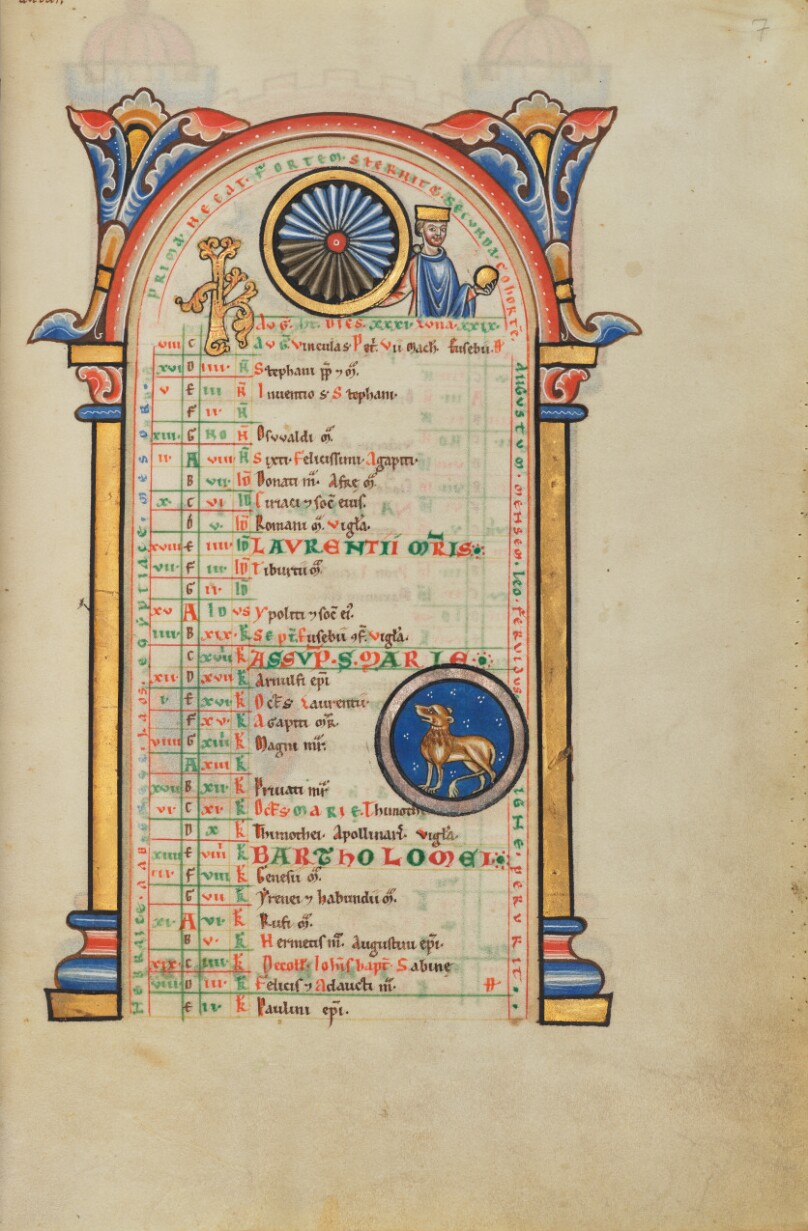 7
PRIMA. NECAT. FORTEM. STERNITQ. SECUNDA. COHORTE.
AUG. hT. DIES. XXXI. LUNA. XXIX.
viii C AUG. Vinculas Pet. Vii mach. Eusebii
xvi D iiii N Stephani pp 7 m.
v E iii N Inventio S. Stephani.
F ii N
xiii G No N Osvvaldi m.
ii A viii N Sixti. Felicissimi. Agapiti.
B vii ID Donati m. Afre m.
x C vi ID Ciriaci 7 soc eius.
D v ID Romani m. vigla.
xviii E iiii ID LAVRENTII MRIS.
vii F iii ID Tiburtii m.
G ii ID
xv A IDVS Ypoliti 7 soc ei.
iiii B xix K Eusebii vigla.
C xviii K ASSVP. S. MARIE.
xii D xvii K Arnulfi epi
i E xvi K Oct S Laurentii
F xv K Agapiti mr.
viiii G xiiii K Magni mr.
A xiii K
xvii B xii K Privati mr
vi C xi K Oct S MARIE. Thimoth
D x K Thimothei. Apollinaris. vigla.
xiiii E viiii K BARTHOLOMEI.
iii F viii K Genesii m.
G vii K Yrenei 7 habundii m.
xi A vi K Rufi m.
B v K Hermetis m. Augustini epi.
xix C iiii K Decoll. Iohis bapt. Sabine
viii D iii K Felicis 7 Adaucti m.
E ii K Paulini epi.
AUGUSTUM. MENSEM. LEO. FERVIDUS
IGNE. PERURIT.